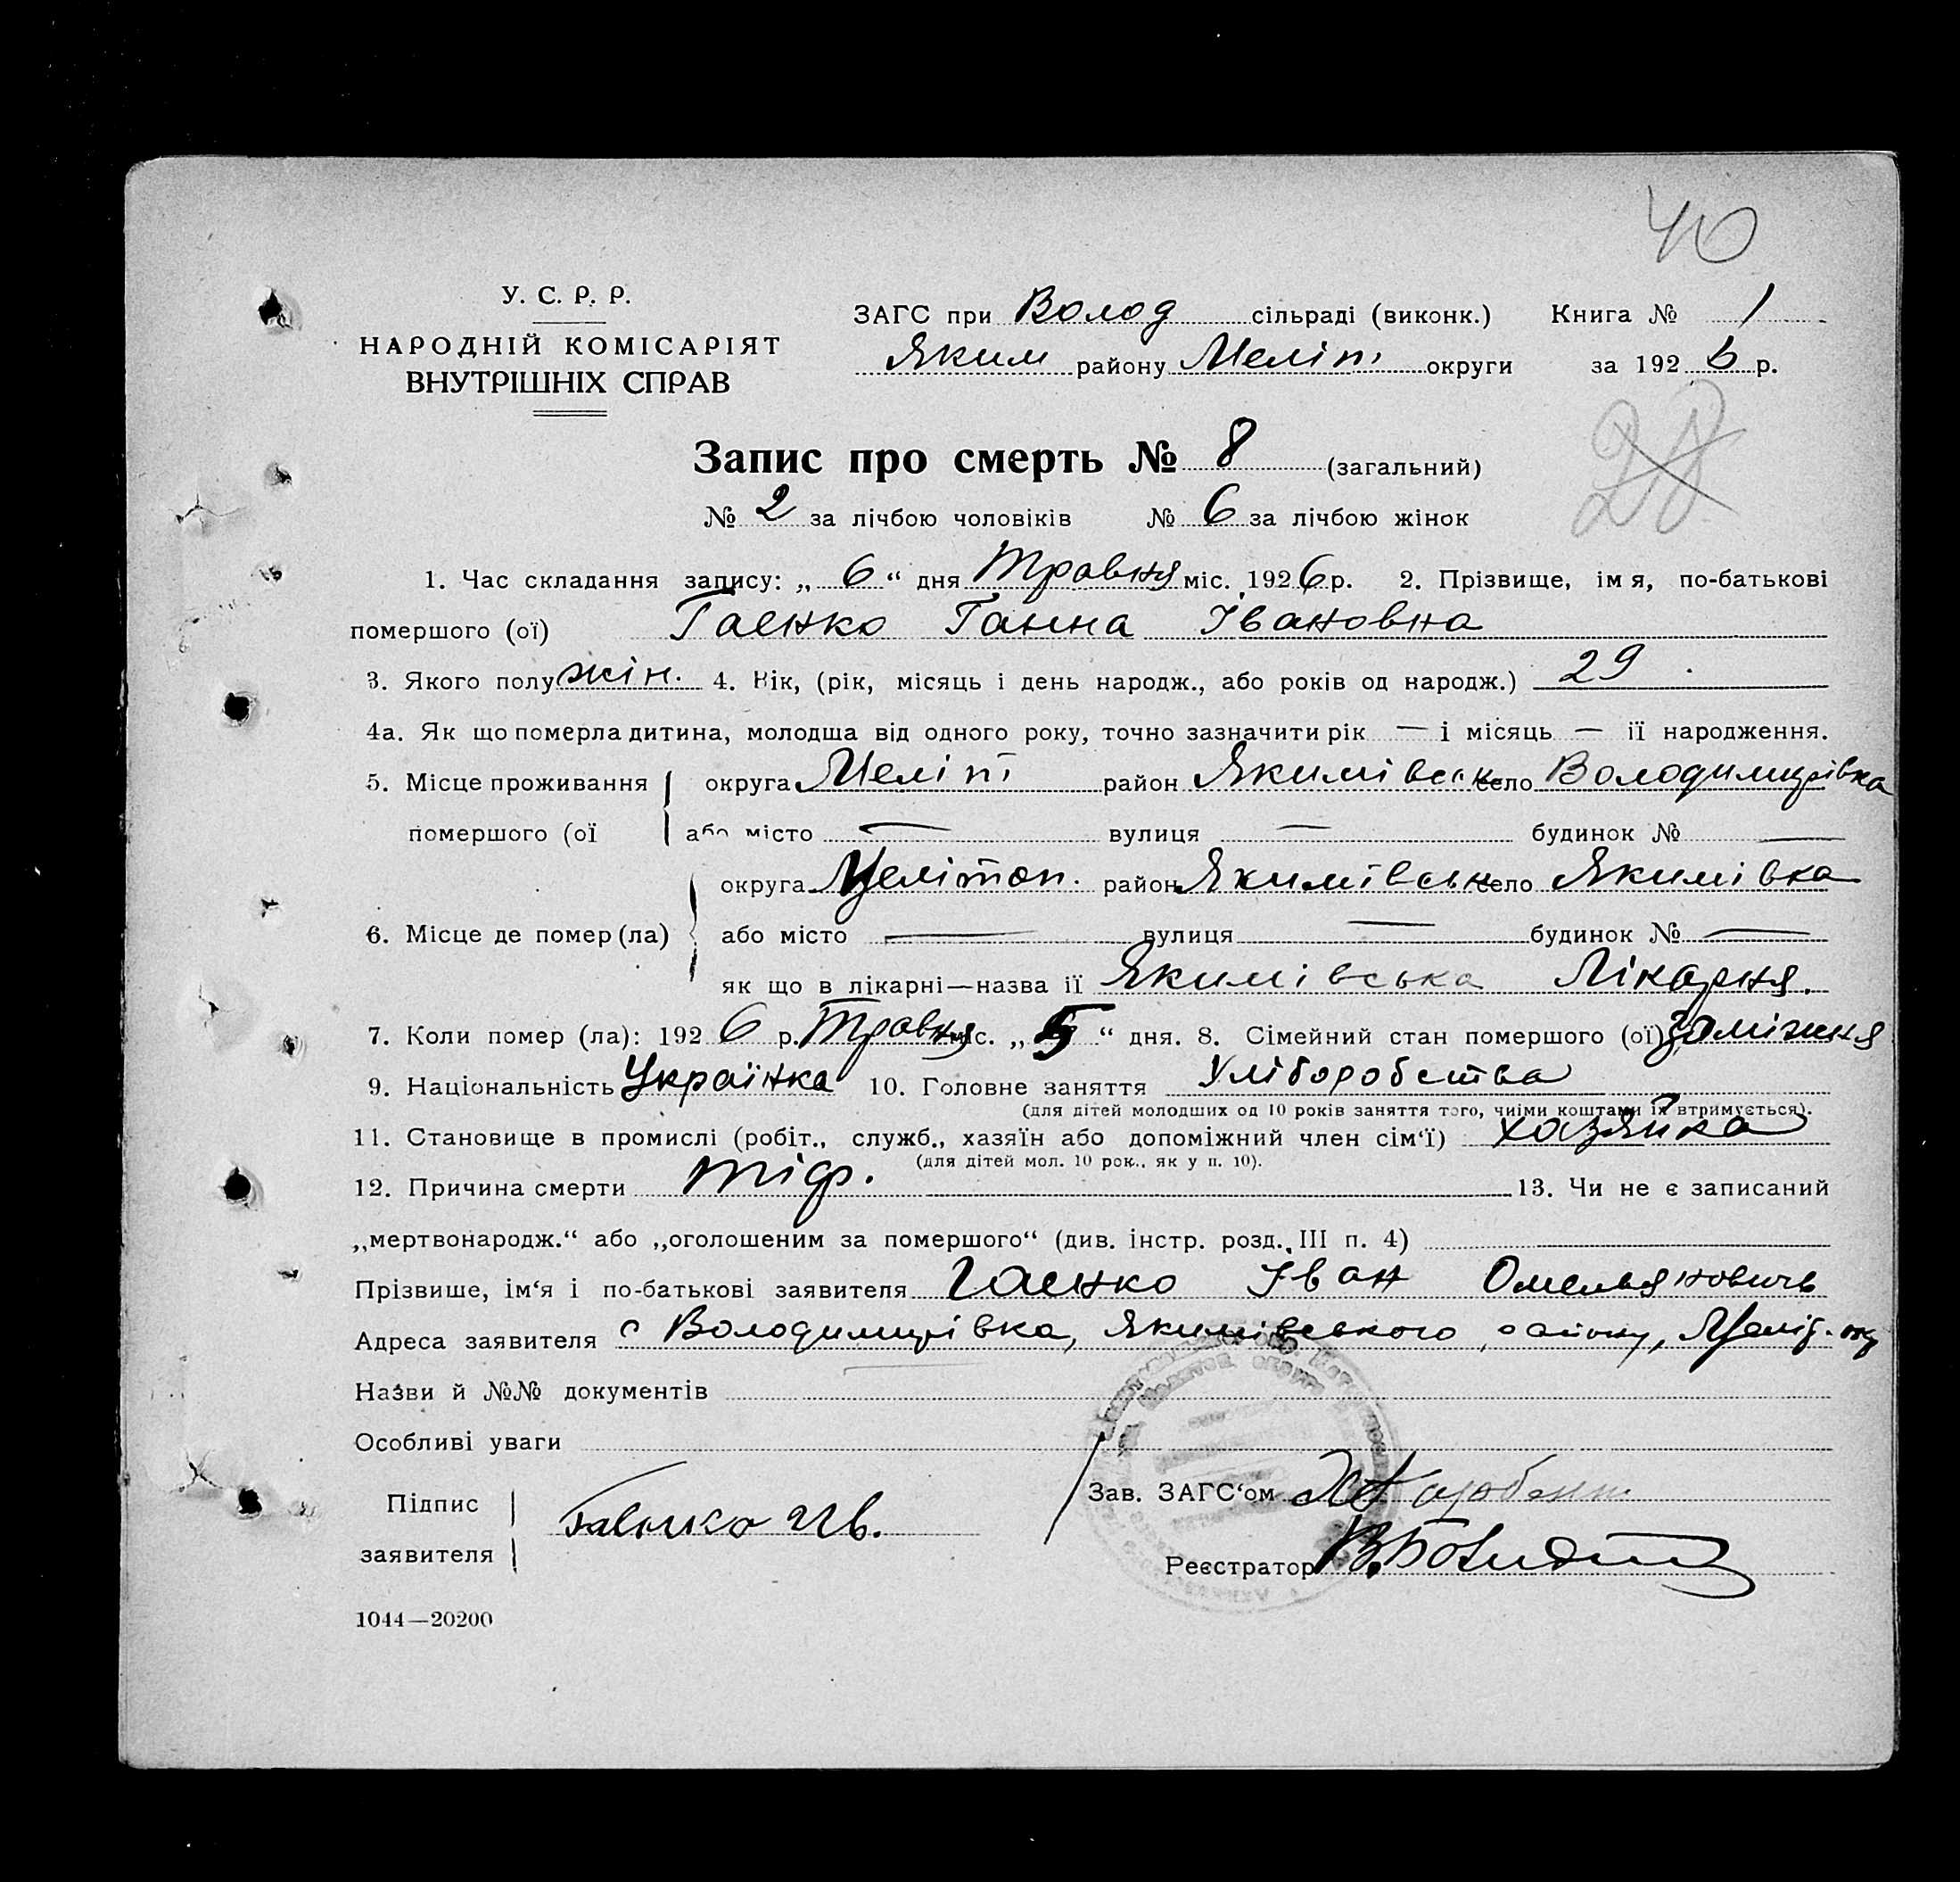 40
У. С. Р. Р.
НАРОДНІЙ КОМІСАРІЯТ
ВНУТРІШНІХ СПРАВ
ЗАГС при Волод сільраді (виконк.) Книга № 1
Яким району Меліт округи за 1926 р.
28
Запис про смерть № 8 (загальний)
№ 2 за лічбою чоловіків № 6 за лічбою жінок
1. Час складання запису: „ 6 “ дня Травня міс. 1926 р. 2. Прізвище, імя, по-батькові
помершого (ої) Гаенко Ганна Івановна
3. Якого полу жін. 4. Вік, (рік, місяць і день народж., або років од народж.) 29
4а. Як що померла дитина, молодша від одного року, точно зазначити рік — і місяць — її народження.
5. Місце проживання округа Меліт район Якимівськ село Володимирівка
помершого (ої або місто — вулиця — будинок № —
округа Мелітоп. район Якимівськ село Якимівка
6. Місце де помер (ла) або місто — вулиця — будинок № —
як що в лікарні—назва її Якимівська Лікарня.
7. Коли помер (ла): 1926 р. Травня міс. „ 5 “ дня. 8. Сімейний стан помершого (ої) Заміжня
9. Національність Українка 10. Головне заняття Хліборобства
(для дітей молодших од 10 років заняття того, чиїми коштами їх втримується).
11. Становище в промислі (робіт., служб., хазяїн або допоміжний член сім‘ї) хазяйка
(для дітей мол. 10 рок., як у п. 10).
12. Причина смерти тіф. 13. Чи не є записаний
„мертвонародж.“ або „оголошеним за помершого“ (див. інстр. розд. III п. 4)
Прізвише, ім‘я і по-батькові заявителя Гаенко Іван Омельяновичь
Адреса заявителя с Володимирівка, Якимівського району, Меліт. окр
Назви й №№ документів
Особливі уваги
Підпис
заявителя
Гаенко Ив.
Зав. ЗАГС‘ом
Реєстратор
1044—20200